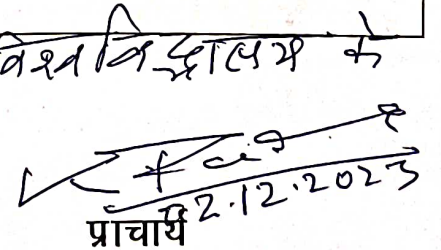 विश्वविद्यालय के
2.12.2023
प्राचार्य